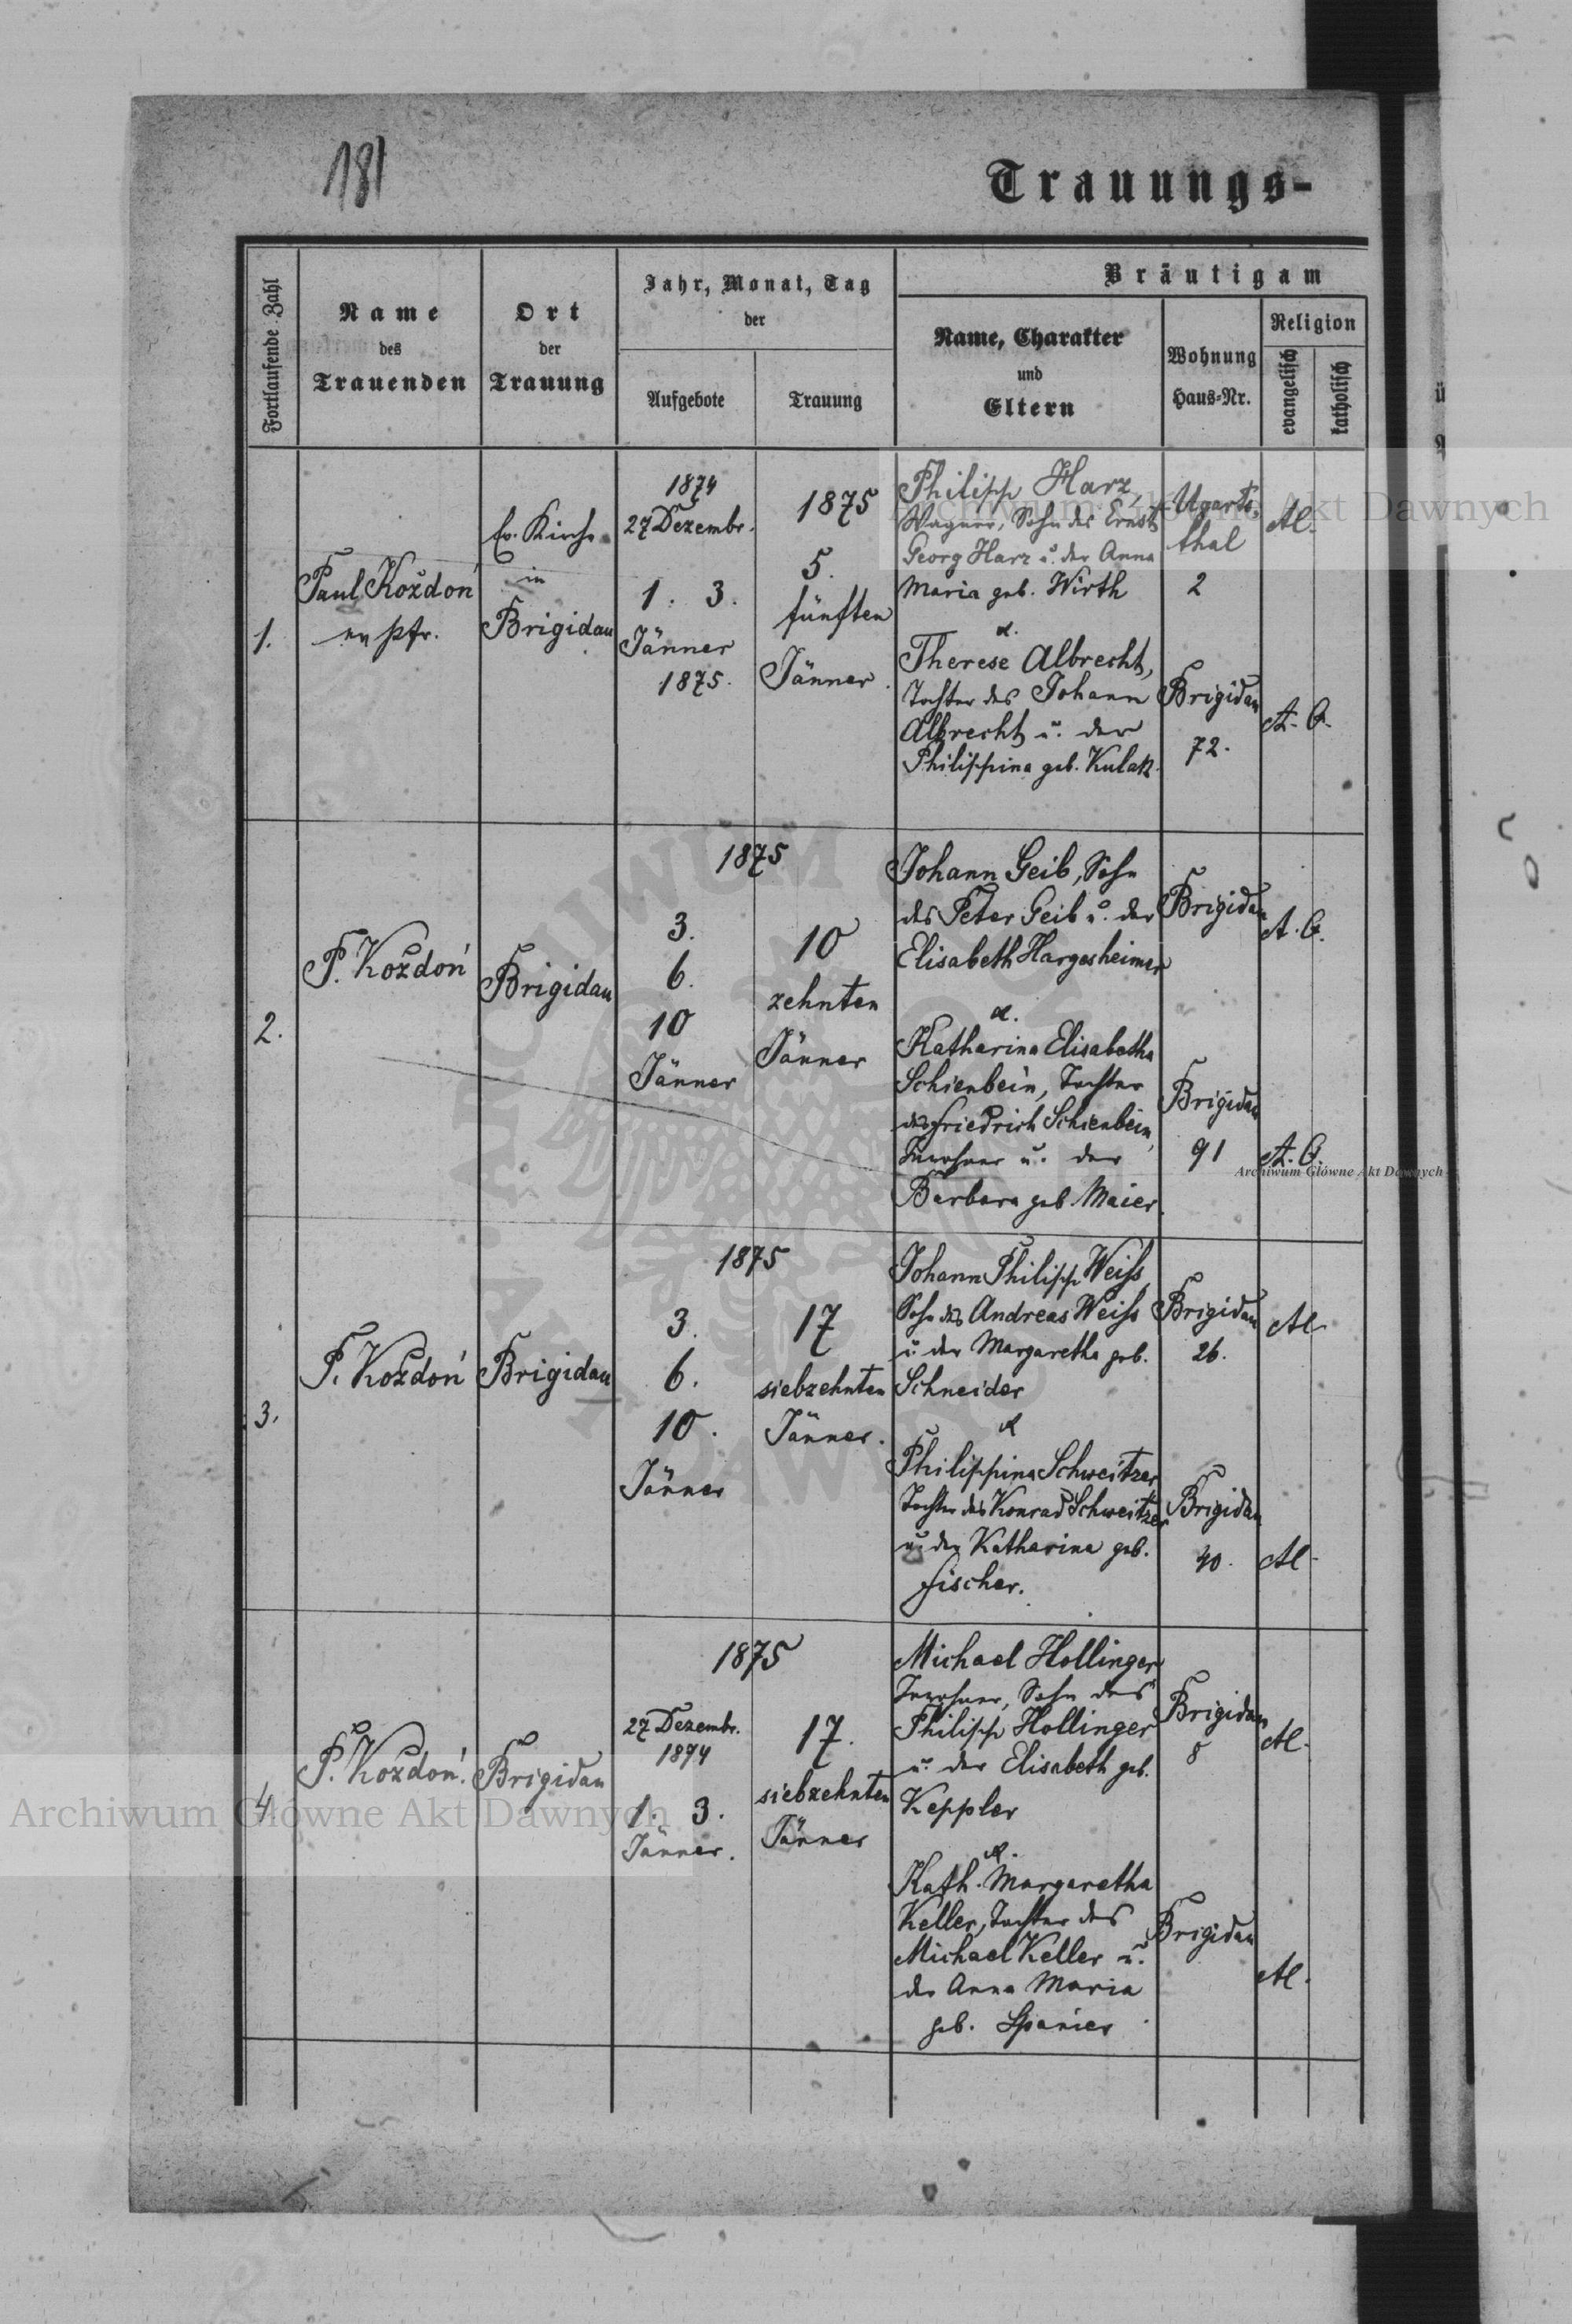 181
Trauungs-
Fortlaufende Zahl
Name
des
Trauenden
Ort
der
Trauung
Jahr, Monat, Tag
der
Aufgebote
Trauung
Bräutigam
Name, Charakter
und
Eltern
Wohnung
Haus-Nr.
Religion
evangelisch
katholisch
1.
Paul Koždoń
ev Pfr.
Ev. Kirche
in
Brigidau
1874
27 Dezembr.
1. 3.
Jänner
1875.
1875
5.
fünften
Jänner.
Philipp Harz,
Wagner, Sohn des Ernst
Georg Harz u. der Anna
Maria geb. Wirth
&.
Therese Albrecht,
Tochter des Johann
Albrecht u. der
Philippina geb. Kulak.
Ugarts-
thal
2
Brigidau
72.
A. C.
2.
P. Koždoń
Brigidau
1875
3.
6.
10
Jänner
10
zehnten
Jänner
Johann Geib, Sohn
des Peter Geib u. der
Elisabeth Hargesheimer
&.
Katharina Elisabetha
Schienbein, Tochter
des Friedrich Schienbein,
Inwohner u. der
Barbara geb. Maier.
Brigidau
Brigidau
91
A. C.
A. C.
3.
P. Koždoń
Brigidau
1875
3.
6.
10.
Jänner
17
siebzehnten
Jänner.
Johann Philipp Weiss,
Sohn des Andreas Weiss
u. der Margaretha geb.
Schneider
&
Philippina Schweitzer
Tochter des Konrad Schweitzer
u. der Katharina geb.
Fischer.
Brigidau
26.
Brigidau
40.
4
P. Koždoń.
Brigidau
1875
27 Dezembr.
1874
1. 3.
Jänner.
17.
siebzehnten
Jänner
Michael Hollinger
Inwohner, Sohn des
Philipp Hollinger
u. der Elisabeth geb.
Keppler
&.
Kath. Margaretha
Keller, Tochter des
Michael Keller u.
der Anna Maria
geb. Spanier
Brigidau
8
Brigidau
Archiwum Główne Akt Dawnych
Archiwum Główne Akt Dawnych
Archiwum Główne Akt Dawnych